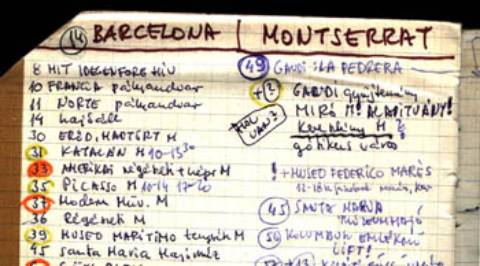 14 BARCELONA | MONTSERRAT
8 HIT IDEGENFORG. HIV
10 FRANCIA pályaudvar
11 NORTE pályaudvar
14 hajóáll.
30 ERŐD, HADTÖRT M
31 KATALÁN M 10-13 30
33 AMERIKAI régészet + népr M
35 PICASSO M 10-14 17-20
37 Modern Műv. M
36 Régészeti M
39 MUSEO MARITIMO tengerh M
45 Santa Maria
49 GAUDI : LA PEDRERA
+ 2 GAUDI gyűjtemény
MIRÓ M! ALAPÍTVÁNY!
HOL VAN?
M ?
gótikus város
! + MUSEO FEDERICO MARÉS
45 SANTA MARIA
54 KOLUMBUS EMLÉKMŰ
LIFT!